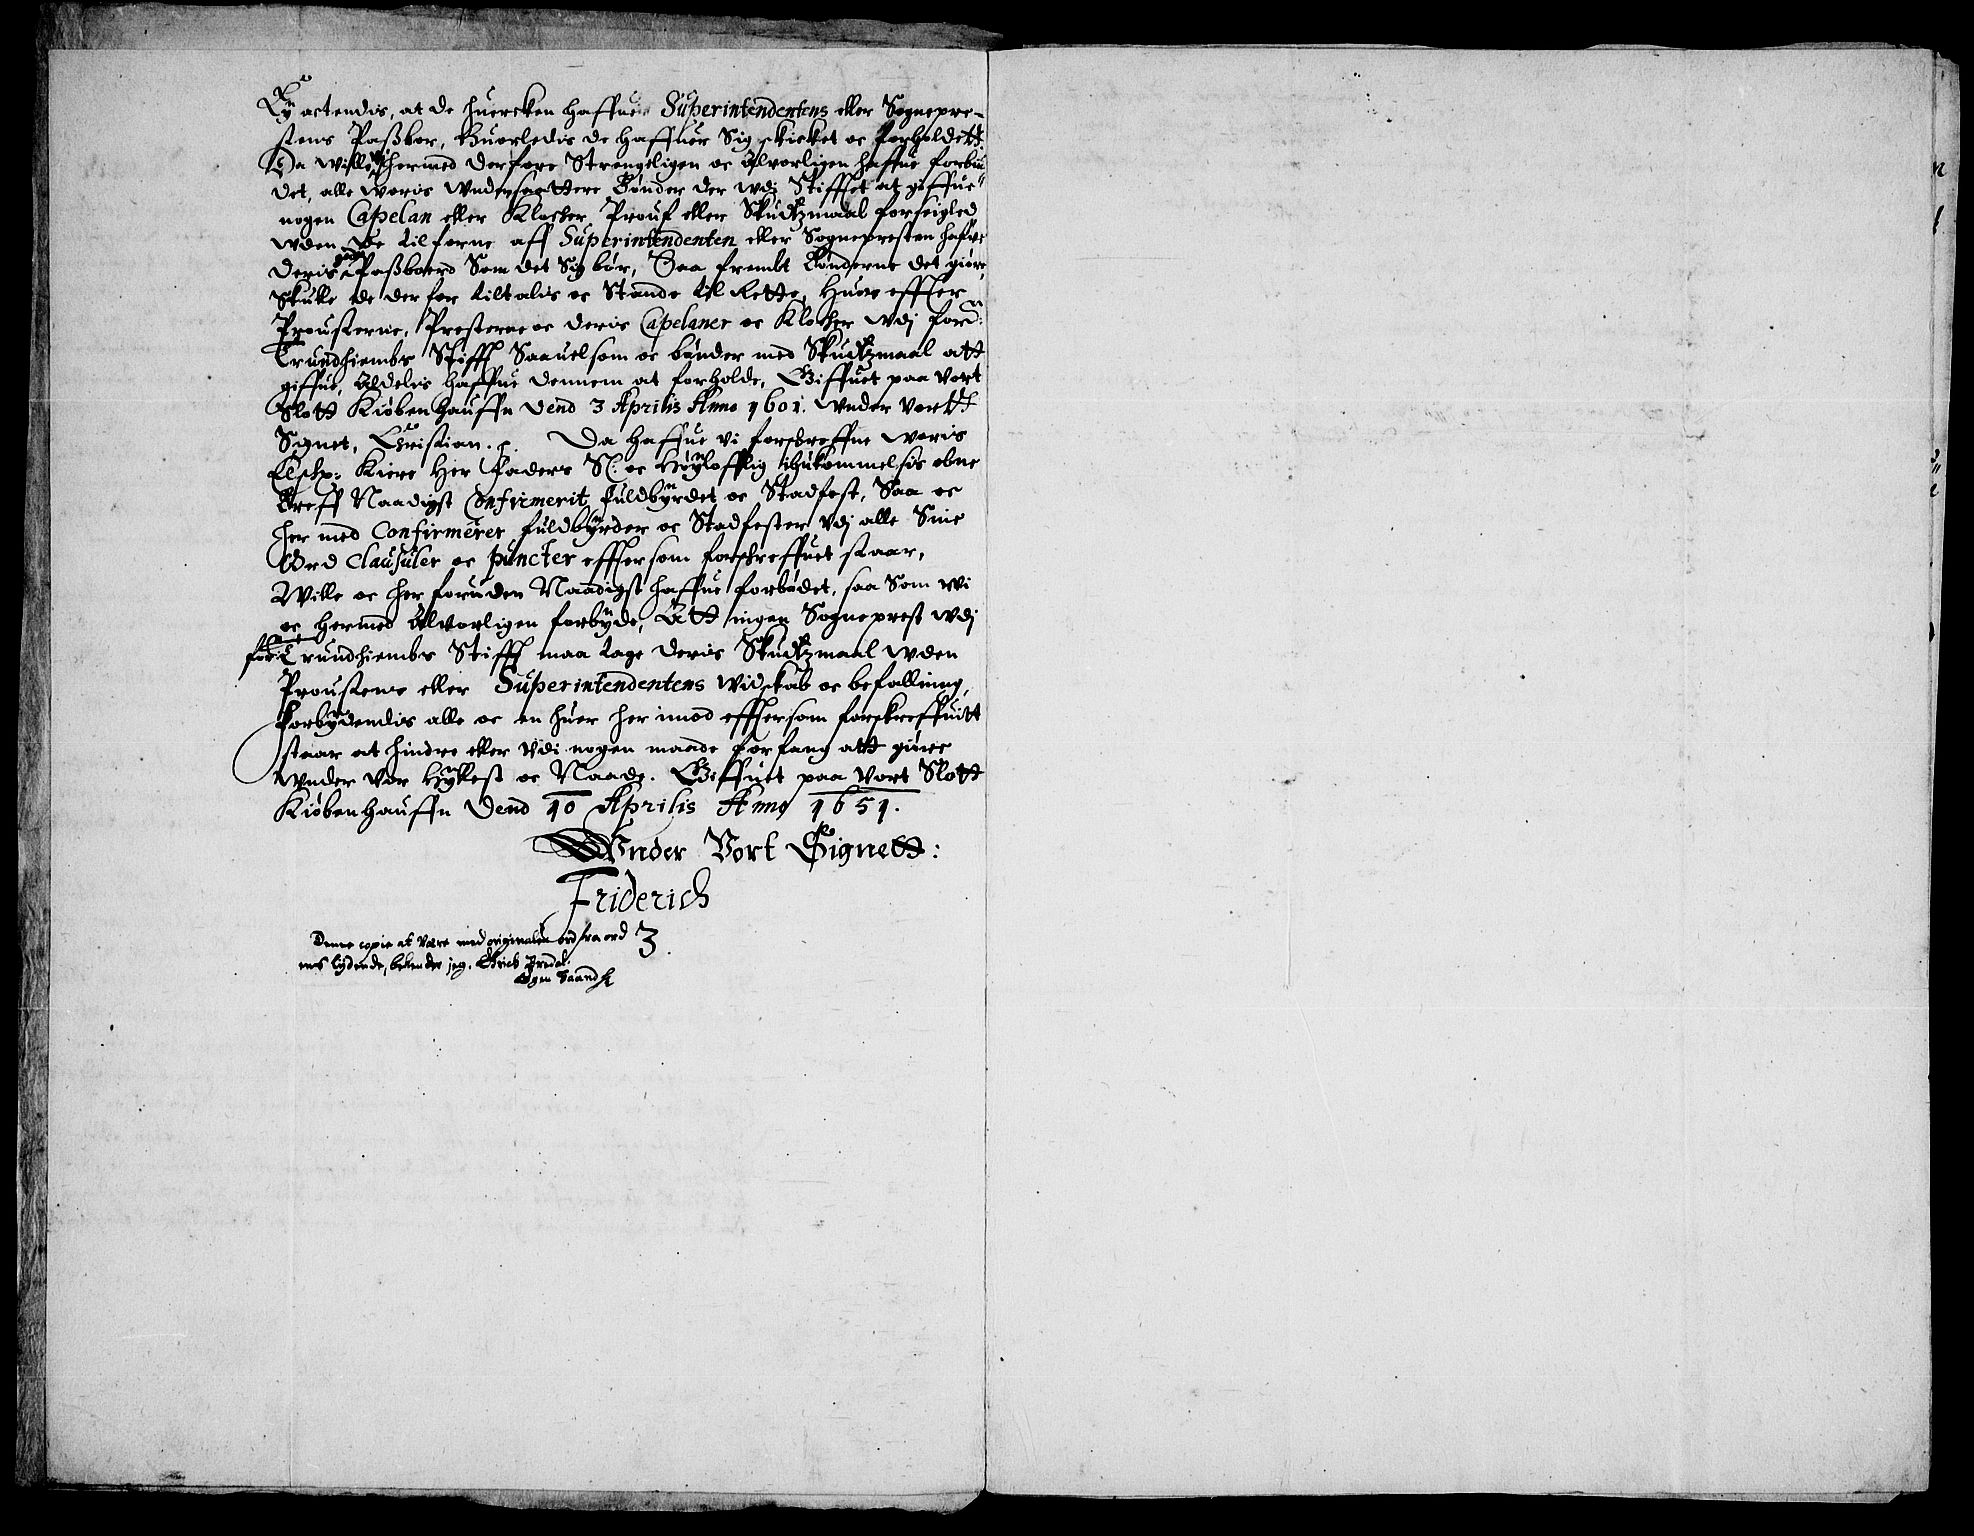 Ey actendis, at de huercken haffuer Superintendentens eller Sognepre-
stens Passbor, Huorledis de haffuer Sig skicket oc forholdett.
Da Wille Wi hermed derfore Strengeligen oc Alvorligen haffue forbiu
det, alle Woris Wndersaattere Bønder der Wdj Stifftet at giffue
nogen Capelan eller Klocker Prouf eller Skudtzmaal forseigled
Wden De tilforne aff Superintendenten eller Sognepresten hafve
Deris gode Passboerd Som det Sig bør, Saa frembt Bønderne det giøre,
Skulle de derfor tiltalis oc Stande til Rette, Huor effter
Prousterne, Presterne oc deris Capelaner oc Klocker Wdj ford:
Trundhiembs Stifft Saauelsom oc bønder med Skudtzmaal att
giffue, Aldelis haffue dennem at forholde, Giffuet paa Vort
Slott Kiøbenhauffn Dend 3 Aprilis Anno 1601. Wnder Vortt
Signet, Christian. Da haffue Vi forskreffne Woris
Elschp: Kiere Her Faders S: oc Høylofflig ihukommelsis obne
Breff Naadigst Confirmerit fuldbyrdet oc Stadfest, Saa oc
her med Confirmerer, fuldbyrder oc Stadfester Vdj alle Sine
Ord Clausuler oc puncter effthersom forskreffuet staar,
Wille oc her foruden Naadigst haffue forbødet, saa Som Wi
oc hermed Alvorligen forbyde, Att ingen Sogneprest Wdj
for:ne Trundhiembs Stifft maa tage Deris Skudtzmaal Wden
Proustens eller Superintendentens Widskab oc befallning,
Forbydendis alle oc en huer her imod effthersom forskreffuitt
staar at hindre eller Vdi nogen maade forfang att giøre
Wnder Vor Hyllest oc Naade. Giffuet paa Vort Slott
Kiøbenhauffn Dend 10 Aprilis Anno 1651.
Wnder Vort Signett:
Friderich
3
Denne copie at være med originalen ord fra ord
ens lydende, bekender jeg. Erich Bredal
Egen haand